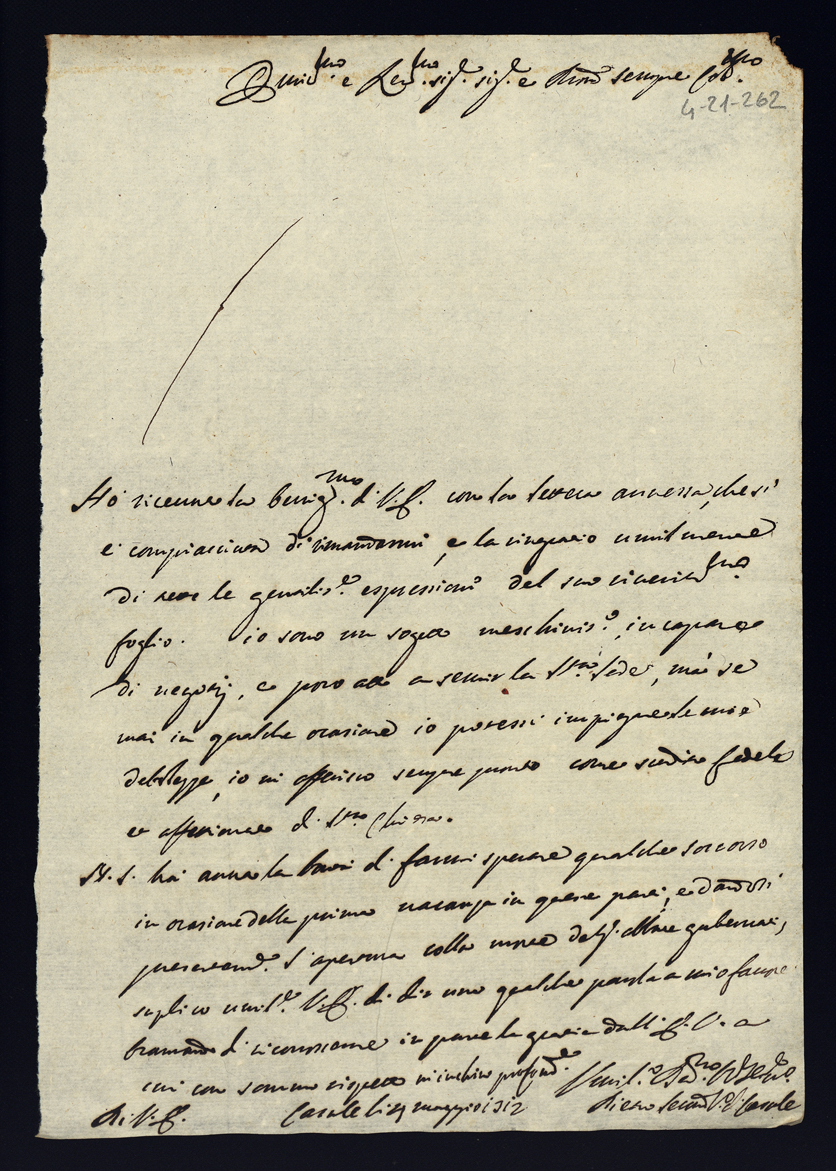 Emin.mo e Rev.mo sig.r sig.r e Pron sempre Col.mo
4-21-262
Ho ricevuta la benig.ma di V.E. con la lettera annessa, che si
è compiacciuta di rimandarmi, e la ringratio umilmente
di tutte le gentilis.e espressioni del suo riverit.mo
foglio. io sono un sogetto meschinis.o, incapace
di negotij, e poco atto a servir la S.ta Sede, mà se
mai in qualche ocasione io potessi impiegare le mie
debolezze, io mi offerisco sempre pronto come suddito fedele
et affetionato di S.ta Chiesa.
N. S. hà avuta la bontà di farmi sperare qualche soccorso
in ocasione della prima vacanza in queste parti, e dandosi
presentem.e l'apertura colla morte dell' Abbate gubernati,
suplico umil.e V.E. di dir una qualche parola a mio favore
bramando di riconoscerne in parte la gratia dall' E.V. a
cui con sommo rispetto m'inchino profond.e
Di V.E. Casale li 29 maggio 1712
Umil.o Dev.mo
Pietro Secondo V.o di Casale